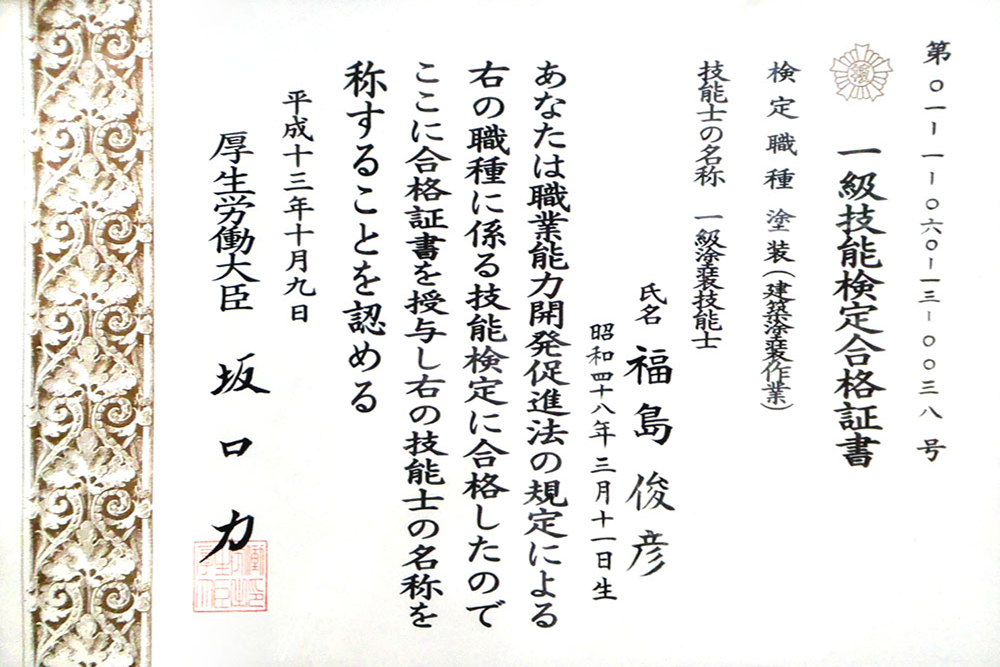 第〇一ー一ー〇六〇ー一三ー〇〇三八号
一級技能検定合格証書
検定職種 塗装(建築塗装作業)
技能士の名称 一級塗装技能士
氏名 福島俊彦
昭和四十八年三月十一日生
あなたは職業能力開発促進法の規定による
右の職種に係る技能検定に合格したので
ここに合格証書を授与し右の技能士の名称を
称することを認める
平成十三年十月九日
厚生労働大臣 坂口力